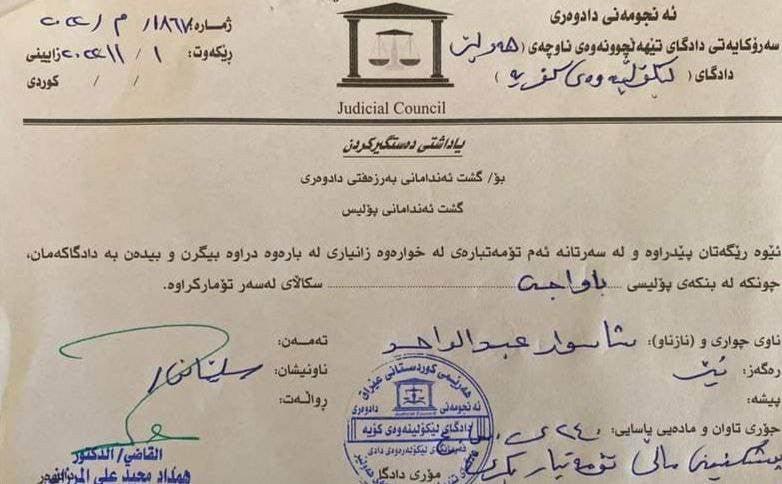 ئەنجومەنی دادوەری
سەرۆکایەتی دادگای تێهەڵچوونەوەی ناوچەی (هەولێر
دادگای (لێکۆڵینەوەی کۆیە)
ژمارە:
ڕێکەوت: ١ / ١١ / ٢٠٢٢ زایینی
/ / کوردی
Judicial Council
یاداشتی دەستگیرکردن
بۆ/ گشت ئەندامانی بەرزەفتی دادوەری
گشت ئەندامانی پۆلیس
ئێوە ڕێگەتان پێدراوە و لە سەرتانە ئەم تۆمەتبارەی لە خوارەوە زانیاری لە بارەوە دراوە بیگرن و بیدەن بە دادگاکەمان،
چونکە لە بنکەی پۆلیسی باواجی سکاڵای لەسەر تۆمارکراوە.
ناوی چواری و (نازناو): شاسوار عبدالواحد
تەمەن:
ڕەگەز: نێر
ناونیشان: سلێمانی
پیشە:
ڕواڵەت:
جۆری تاوان و ماددەیی یاسایی:
پشکنینی ماڵی تۆمەتبار بکرێ
هەرێمی کوردستانی عێراق
ئەنجومەنی دادوەری
Judicial Council
دادگای لێکۆڵینەوەی کۆیە
مۆری دادگا
القاضي/ الدكتور
همداد مجيد علي